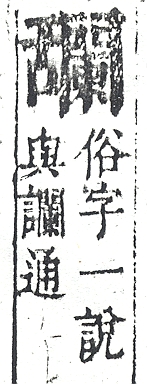 俗字一說
與讕通